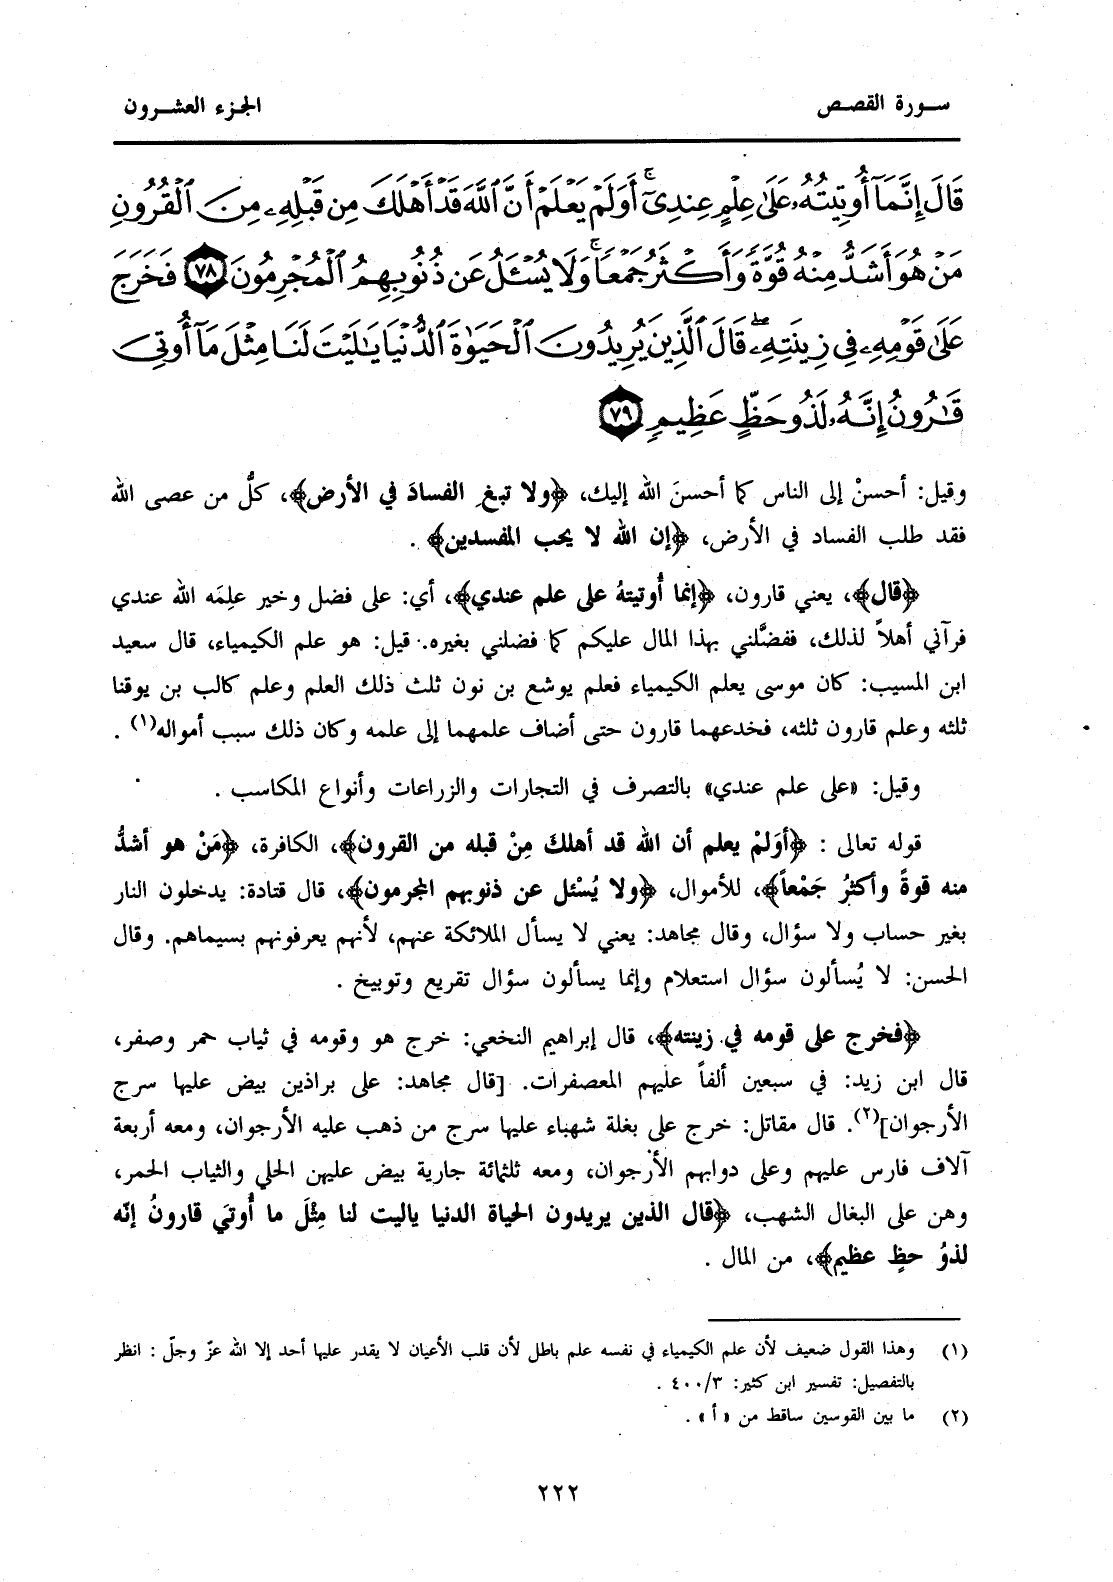 سورة القصص
الجزء العشرون
قَالَ إِنَّمَآ أُوتِيتُهُۥ عَلَىٰ عِلْمٍ عِندِىٓ ۚ أَوَلَمْ يَعْلَمْ أَنَّ ٱللَّهَ قَدْ أَهْلَكَ مِن قَبْلِهِۦ مِنَ ٱلْقُرُونِ
مَنْ هُوَ أَشَدُّ مِنْهُ قُوَّةً وَأَكْثَرُ جَمْعًا ۚ وَلَا يُسْـَٔلُ عَن ذُنُوبِهِمُ ٱلْمُجْرِمُونَ ﴿٧٨﴾ فَخَرَجَ
عَلَىٰ قَوْمِهِۦ فِى زِينَتِهِۦ ۖ قَالَ ٱلَّذِينَ يُرِيدُونَ ٱلْحَيَوٰةَ ٱلدُّنْيَا يَـٰلَيْتَ لَنَا مِثْلَ مَآ أُوتِىَ
قَـٰرُونُ إِنَّهُۥ لَذُو حَظٍّ عَظِيمٍ ﴿٧٩﴾
وقيل: أحسنْ إلى الناس كما أحسنَ الله إليك، ﴿ولا تبغِ الفسادَ في الأرض﴾، كلُّ من عصى الله
فقد طلب الفساد في الأرض، ﴿إن الله لا يحب المفسدين﴾ .
﴿قال﴾، يعني قارون، ﴿إنما أُوتيتهُ على علم عندي﴾، أي: على فضل وخير علِمَه الله عندي
فرآني أهلاً لذلك، ففضَّلني بهذا المال عليكم كما فضلني بغيره. قيل: هو علم الكيمياء، قال سعيد
ابن المسيب: كان موسى يعلم الكيمياء فعلم يوشع بن نون ثلث ذلك العلم وعلم كالب بن يوقنا
ثلثه وعلم قارون ثلثه، فخدعهما قارون حتى أضاف علمهما إلى علمه وكان ذلك سبب أمواله(١) .
وقيل: «على علم عندي» بالتصرف في التجارات والزراعات وأنواع المكاسب .
قوله تعالى : ﴿أوَلمْ يعلم أن الله قد أهلك مِنْ قبله من القرون﴾، الكافرة، ﴿مَنْ هو أشدُّ
منه قوةً وأكثرُ جَمْعاً﴾، للأموال، ﴿ولا يُسْئل عن ذنوبهم المجرمون﴾، قال قتادة: يدخلون النار
بغير حساب ولا سؤال، وقال مجاهد: يعني لا يسأل الملائكة عنهم، لأنهم يعرفونهم بسيماهم. وقال
الحسن: لا يُسألون سؤال استعلام وإنما يسألون سؤال تقريع وتوبيخ .
﴿فخرج على قومه في زينته﴾، قال إبراهيم النخعي: خرج هو وقومه في ثياب حمر وصفر،
قال ابن زيد: في سبعين ألفاً عليهم المعصفرات. [قال مجاهد: على براذين بيض عليها سرج
الأرجوان](٢). قال مقاتل: خرج على بغلة شهباء عليها سرج من ذهب عليه الأرجوان، ومعه أربعة
آلاف فارس عليهم وعلى دوابهم الأرجوان، ومعه ثلثمائة جارية بيض عليهن الحلي والثياب الحمر،
وهن على البغال الشهب، ﴿قال الذين يريدون الحياة الدنيا ياليت لنا مِثْلَ ما أُوتيَ قارونُ إنّه
لذوُ حظٍ عظيم﴾، من المال .
(١) وهذا القول ضعيف لأن علم الكيمياء في نفسه علم باطل لأن قلب الأعيان لا يقدر عليها أحد إلا الله عزّ وجلّ : انظر
بالتفصيل: تفسير ابن كثير: ٣/٤٠٠ .
(٢) ما بين القوسين ساقط من «أ» .
٢٢٢